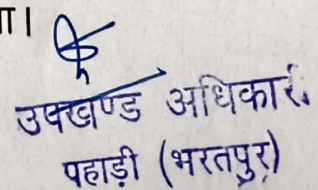 ा।
उपखण्ड अधिकारी
पहाड़ी (भरतपुर)